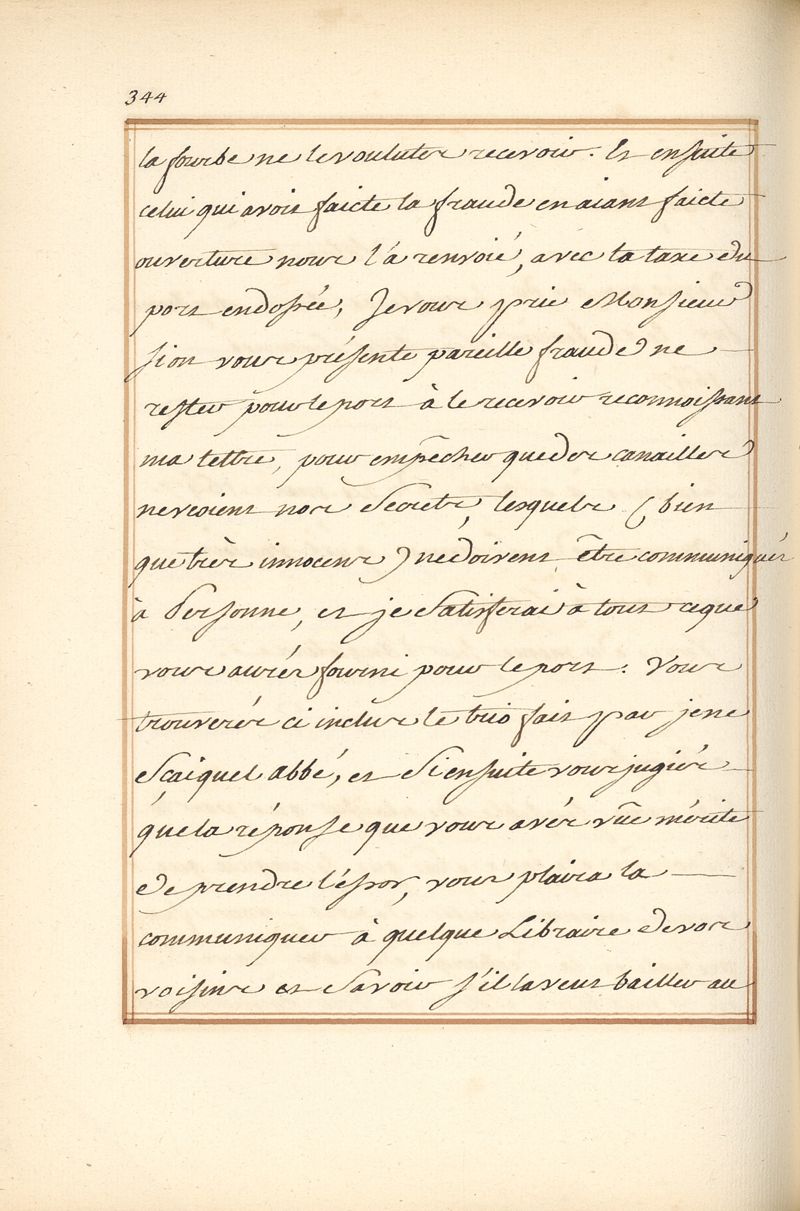 344
la fourbe ne le voulutes recevoir. Et ensuite
celui qui avoit faicte la fraude en aiant faicte
ouverture nous l'a renvoié, avec la taxe du
port endossée, Je vous prie Monsieur
si on vous présente pareille fraude ne
rester pour le port à le recevoir reconnoissant
ma lettre, pour empêcher que des canailles
ne veoient nos Secrets, lesquels (bien
que très innocens) ne doivent être communiqués
à Personne, et je Satisferai à tout ce que
vous aurés fourni pour le port. Vous
trouverés ci inclus le trio fait par je ne
Sçai quel abbé, et Si ensuite vous jugiés
que la réponse que vous avés vûe mérite
de prendre l'éssor, vous plaira la
communiquer à quelque Libraire de vos
voisins et Savoir s'il la veut bailler au